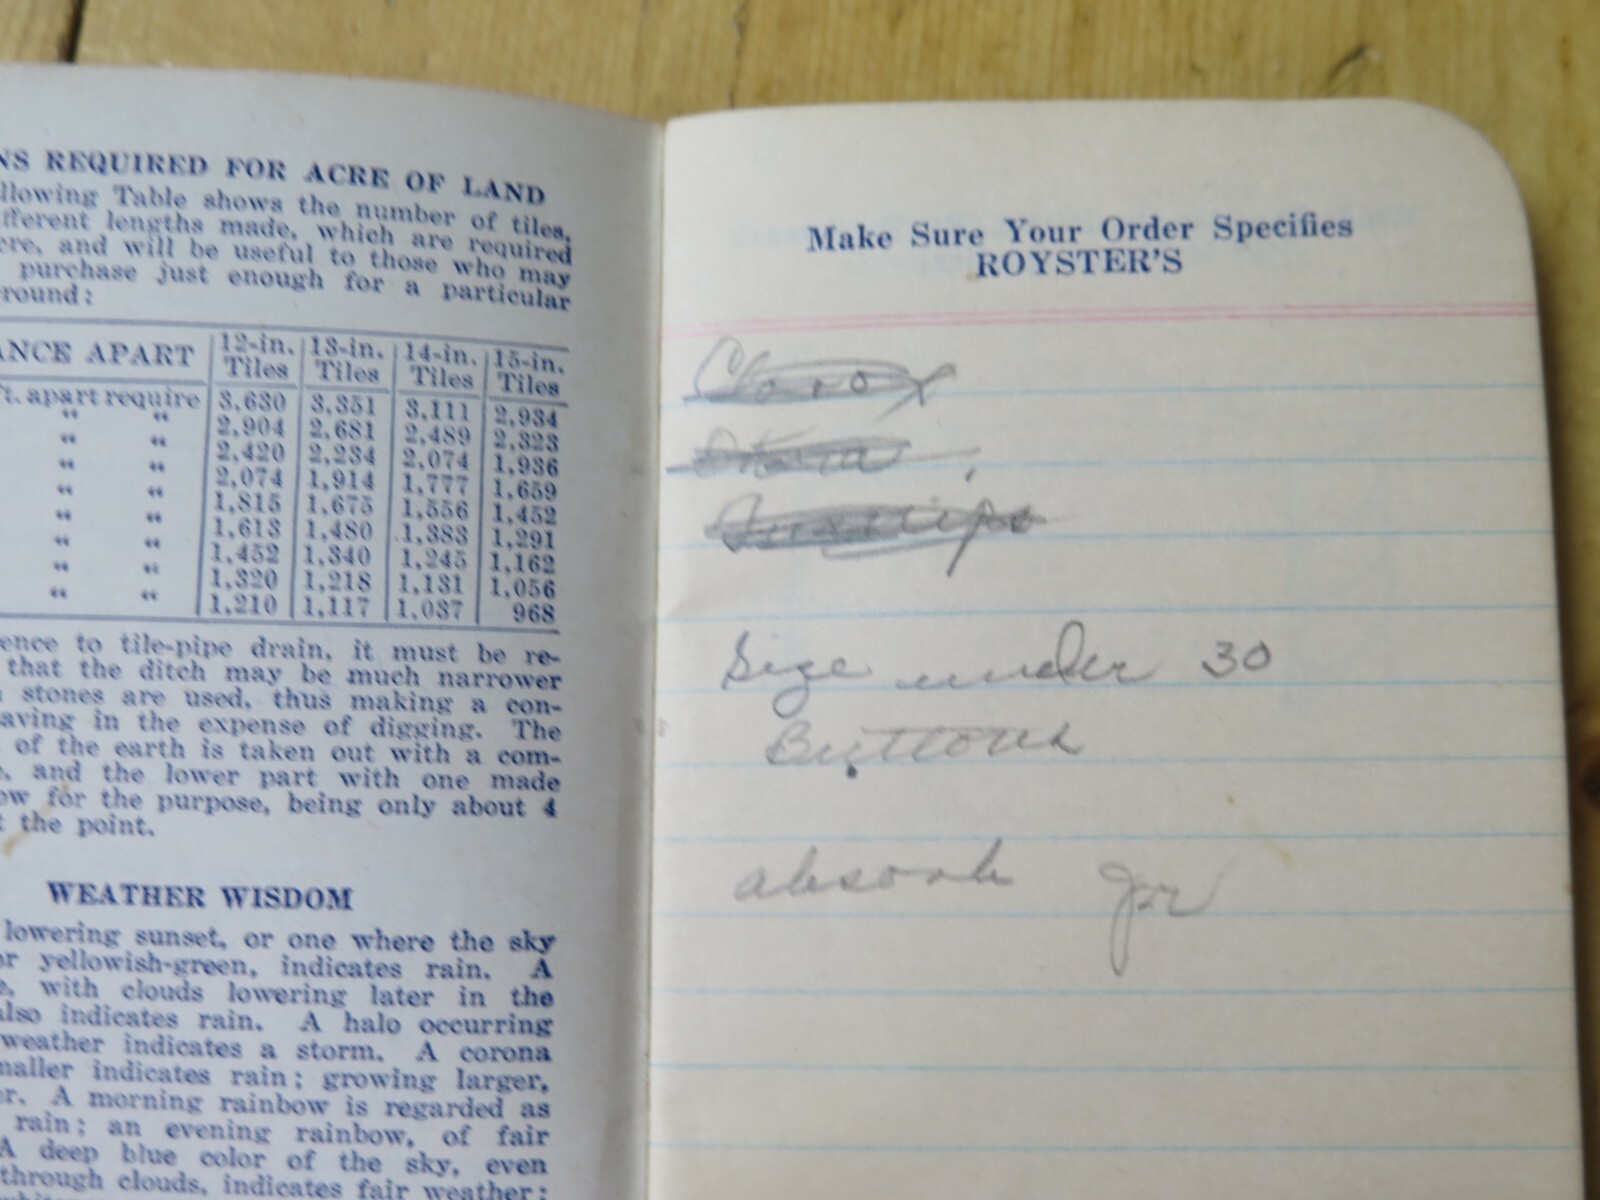 NS REQUIRED FOR ACRE OF LAND
llowing Table shows the number of tiles,
fferent lengths made, which are required
cre, and will be useful to those who may
purchase just enough for a particular
round:
ANCE APART 12-in. Tiles 13-in. Tiles 14-in. Tiles 15-in. Tiles
t. apart require 3,630 3,351 3,111 2,934
“ “ 2,904 2,681 2,489 2,323
“ “ 2,420 2,234 2,074 1,936
“ “ 2,074 1,914 1,777 1,659
“ “ 1,815 1,675 1,556 1,452
“ “ 1,613 1,480 1,383 1,291
“ “ 1,452 1,340 1,245 1,162
“ “ 1,320 1,218 1,131 1,056
“ “ 1,210 1,117 1,037 968
ence to tile-pipe drain, it must be re-
that the ditch may be much narrower
stones are used, thus making a con-
aving in the expense of digging. The
of the earth is taken out with a com-
, and the lower part with one made
ow for the purpose, being only about 4
t the point.
WEATHER WISDOM
lowering sunset, or one where the sky
or yellowish-green, indicates rain. A
e, with clouds lowering later in the
also indicates rain. A halo occurring
weather indicates a storm. A corona
maller indicates rain; growing larger,
er. A morning rainbow is regarded as
rain; an evening rainbow, of fair
A deep blue color of the sky, even
through clouds, indicates fair weather;
Make Sure Your Order Specifies
ROYSTER'S
Clorox
Size under 30
Buttons
absorb Jr